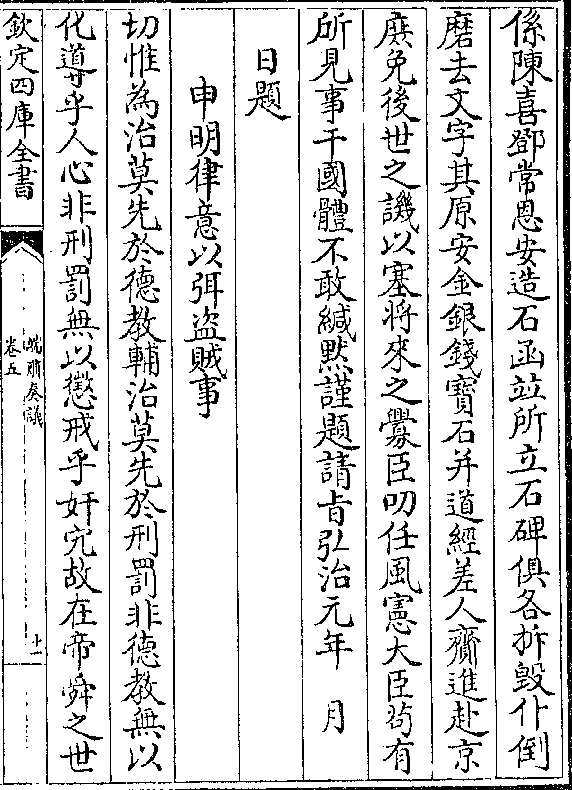 係陳喜鄧常恩安造石函竝所立石碑俱各拆毀仆倒
磨去文字其原安金銀錢寶石并道經差人齎進赴京
庶免後世之譏以塞將來之釁臣叨任風憲大臣茍有
所見事干國體不敢緘黙謹題請㫖弘治元年　月
日題
申明律意以弭盗賊事
切惟為治莫先於德教輔治莫先於刑罰非德教無以
化導乎人心非刑罰無以懲戒乎奸宄故在帝舜之世
欽定四庫全書
端肅奏議
卷五
十一